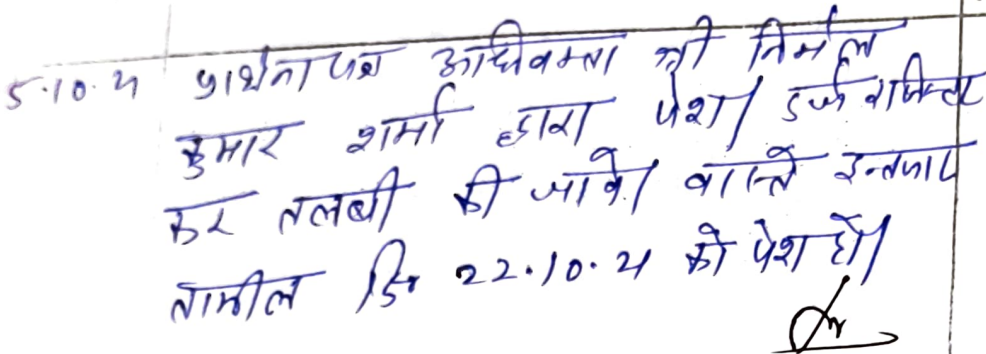 5.10.21 प्रार्थना पत्र अधिवक्ता श्री निर्मल
कुमार शर्मा द्वारा पेश। दर्ज रजिस्टर
कर तलबी की जावे। वास्ते इन्तजार
तामील दि० 22.10.21 को पेश हो।